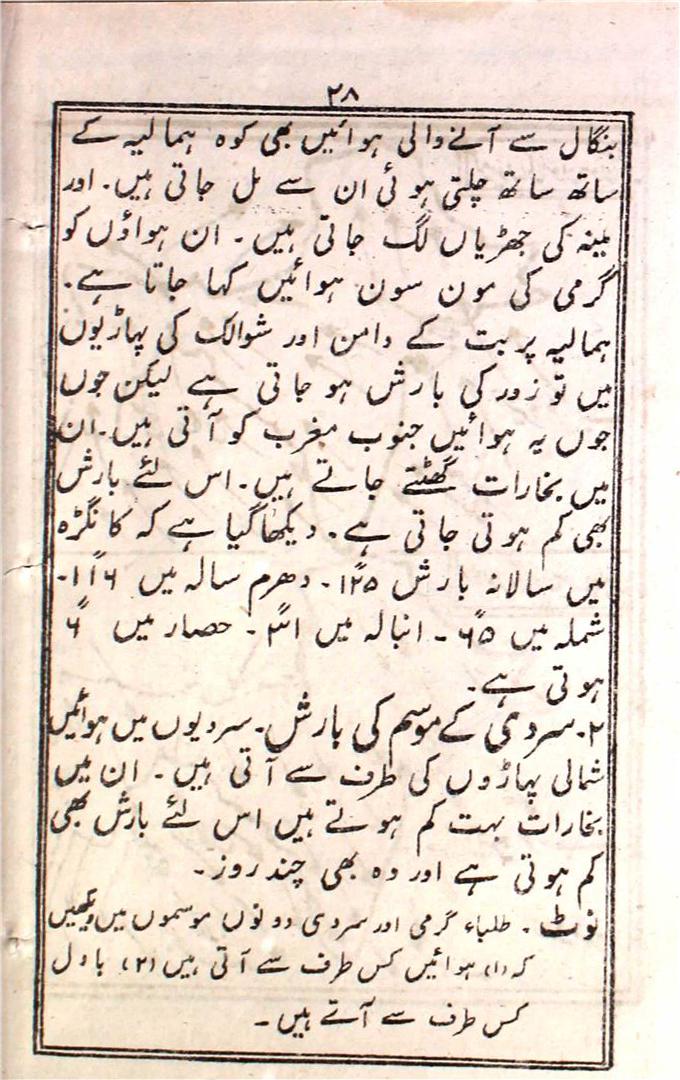 ۲۸
بنگال سے آنے والی ہوائیں بھی کوہ ہمالیہ کے
ساتھ ساتھ چلتی ہوئی ان سے مل جاتی ہیں۔ اور
مینہ کی جھڑیاں لگ جاتی ہیں۔ ان ہواؤں کو
گرمی کی مون سون ہوائیں کہا جاتا ہے۔
ہمالیہ پربت کے دامن اور شوالک کی پہاڑیوں
میں تو زور کی بارش ہو جاتی ہے لیکن جوں
جوں یہ ہوائیں جنوب مغرب کو آتی ہیں۔ ان
میں بخارات گھٹتے جاتے ہیں۔ اس لئے بارش
بھی کم ہوتی جاتی ہے۔ دیکھا گیا ہے کہ کانگڑہ
میں سالانہ بارش ۱۲۵ً۔ دھرم سالہ میں ۱۱۶ً۔
شملہ میں ۶۵ً۔ انبالہ میں ۳۱ً۔ حصار میں ۶ً
ہوتی ہے۔
۲۔ سردی کے موسم کی بارش۔ سردیوں میں ہوائیں
شمالی پہاڑوں کی طرف سے آتی ہیں۔ ان میں
بخارات بہت کم ہوتے ہیں اس لئے بارش بھی
کم ہوتی ہے اور وہ بھی چند روز۔
نوٹ۔ طلباء گرمی اور سردی دونوں موسموں میں دیکھیں
کہ (۱) ہوائیں کس طرف سے آتی ہیں (۲) بادل
کس طرف سے آتے ہیں۔